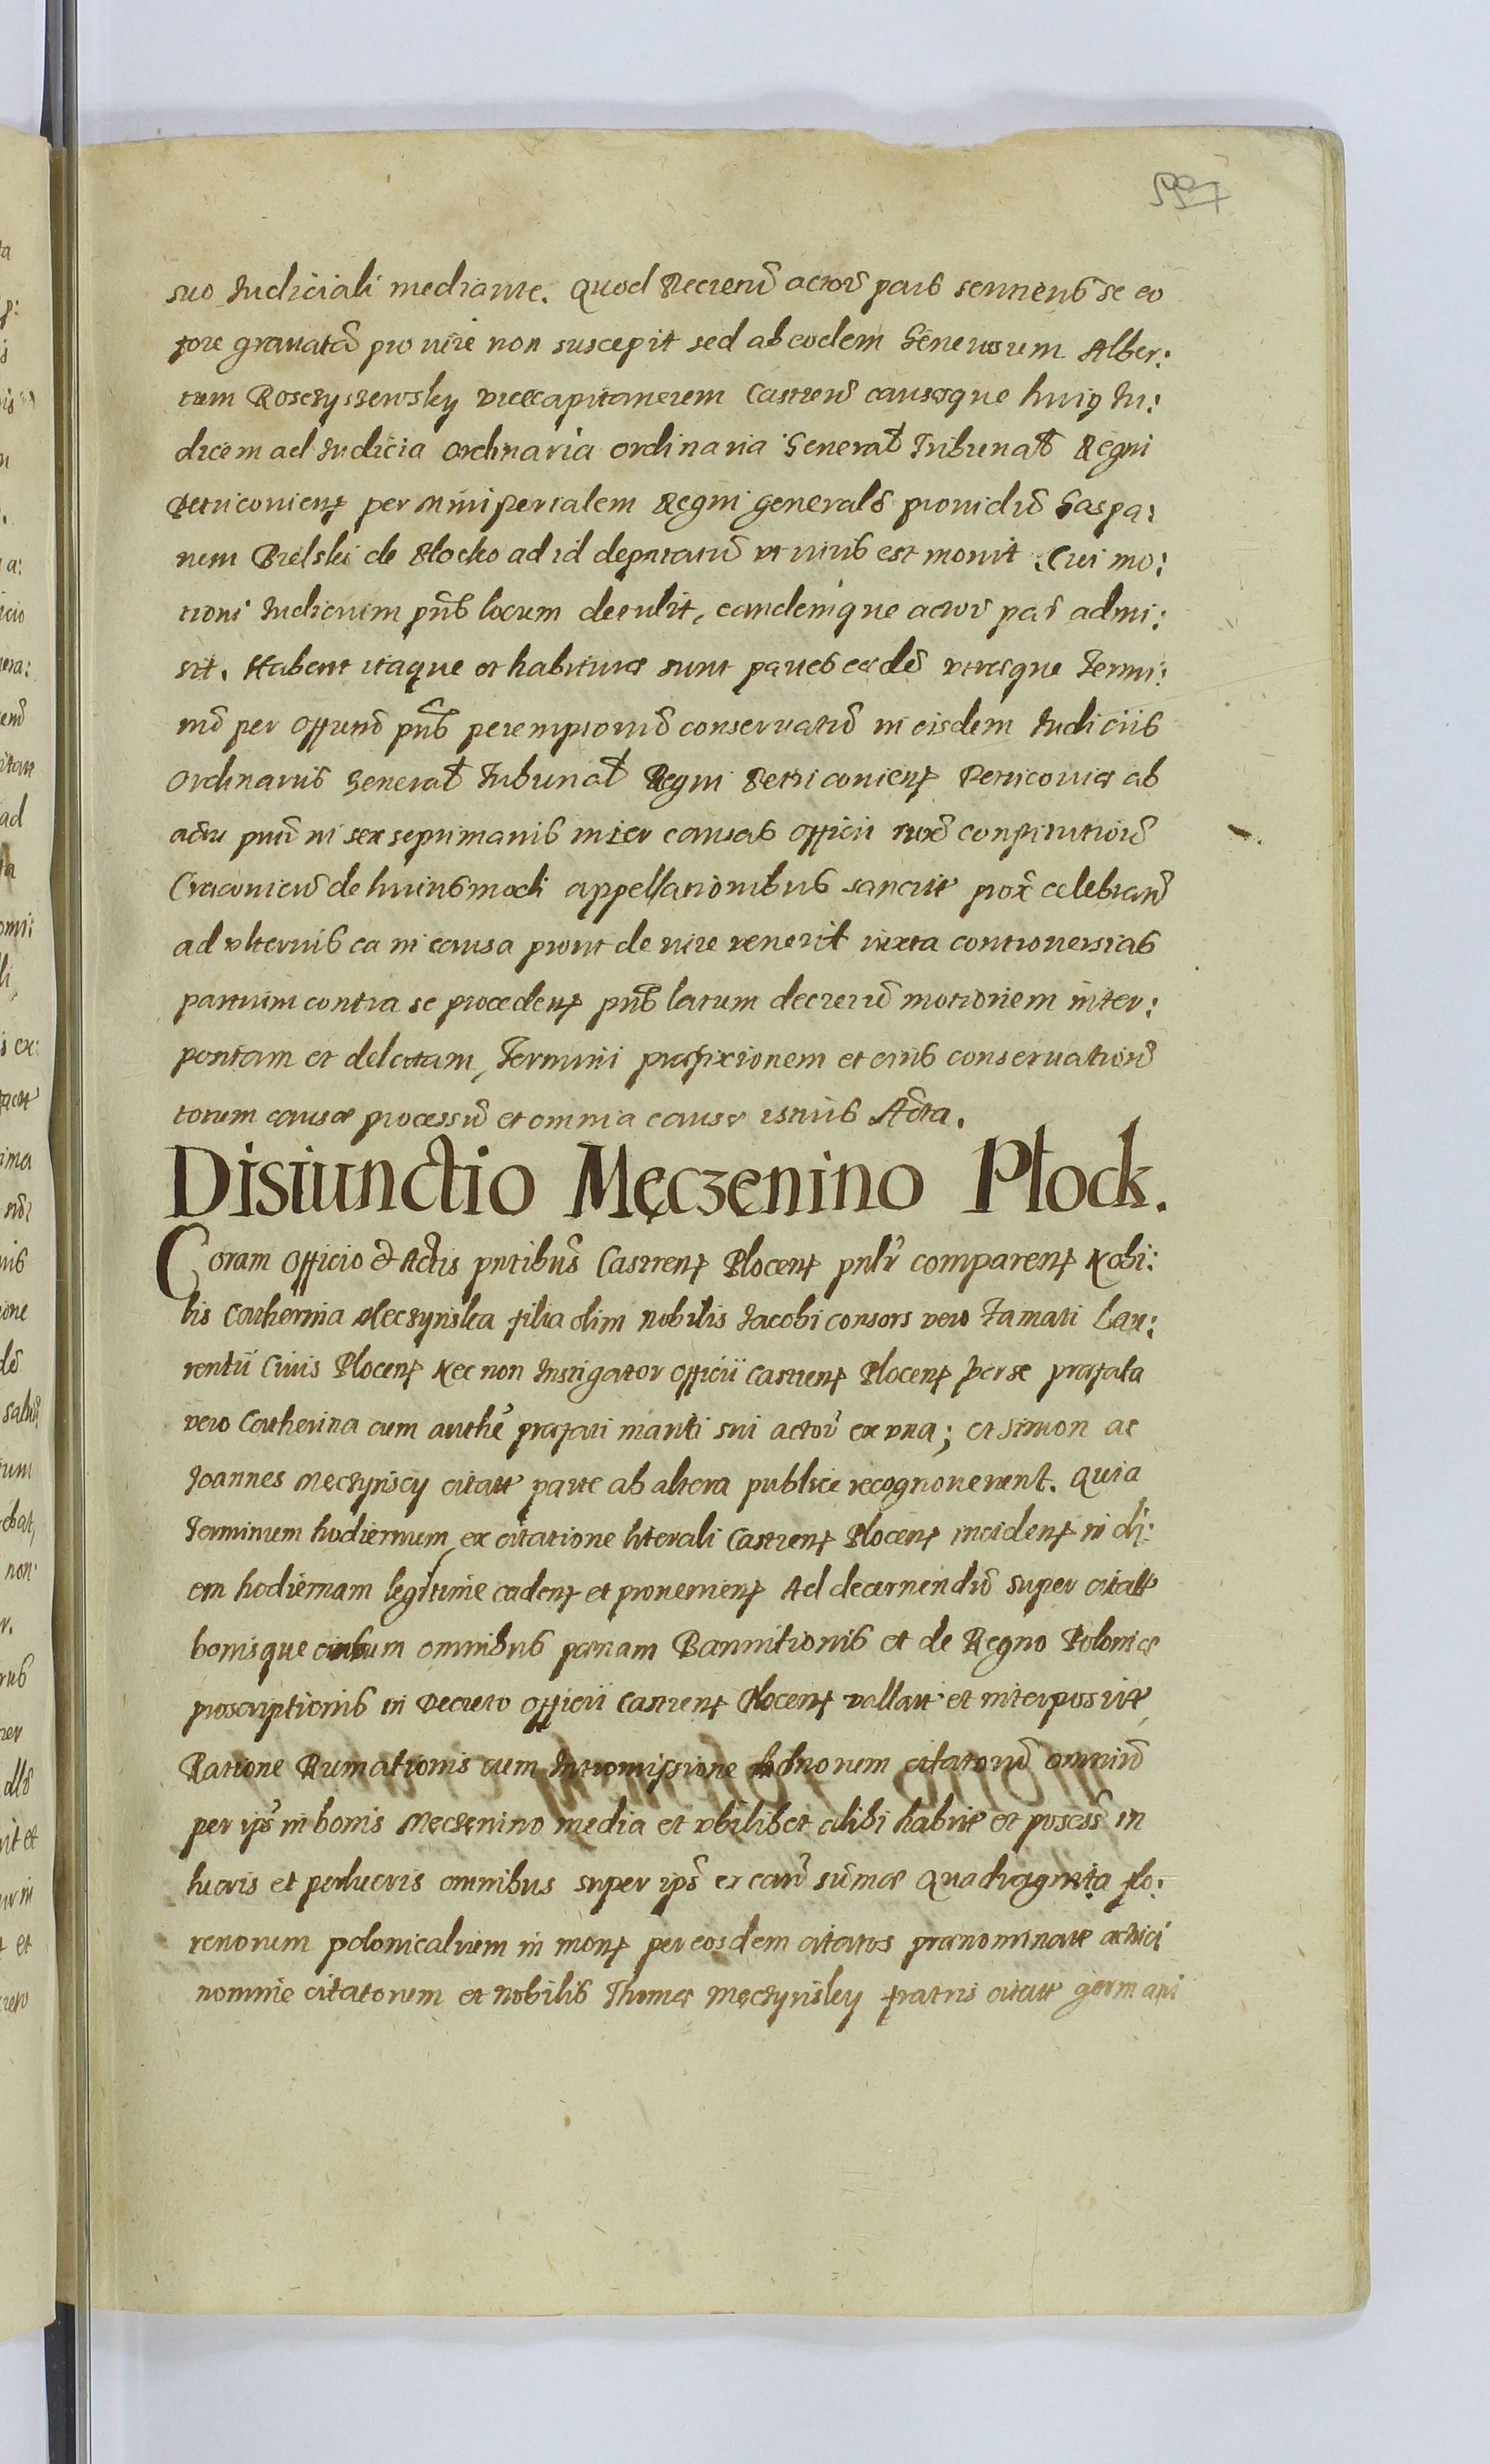 597
suo Iudiciali mediante. Quod Decretū actor̄ pars sentiens se eo
fore gravatā pro iure non suscepit sed ab eodem Generosum Alber:
tum Rosczyszewsky vicecapitaneum Castren̄ causæque huiꝰ Iu:
dicem ad Iudicia ordinaria ordinaria General Tribunal Regni
Petricovien̄ per Ministerialem Regni generalē providū Gaspa:
rem Bielski de Plocko ad id deputatū ut iuris est movit. Cui mo:
tioni Iudicium pn̄s locum detulit, eandemque actor̄ par̄ admi:
sit. Habent itaque et habituræ sunt partes eædē utræque Termi:
nū per Officiū pn̄s peremptoriū conservatū in eisdem Iudiciis
Ordinariis General Tribunal Regni Petricovien̄ Petricoviæ ab
actu pn̄ti in sex septimanis inter causas officii iuxˉ constitutionē
Cracovien̄ de huiusmodi appellationibus sancitˉ proxˉ celebran̄
ad ulterius ea in causa prout de iure venerit iuxta controversias
partium contra se proceden̄ pn̄s latum decretū motionem inter:
positam et delatam, Termini præfixionem et eius conservationē
totum causæ processū et omnia causæ istius Acta.
Disiunctio Męczenino Płock.
Coram Officio & Actis pn̄tibus Castren̄ Plocen̄ pn̄lr̄ comparen̄ Nobi:
lis Catherina Meczynska filia olim Nobilis Iacobi consors vero Famati Lau:
rentii Civis Plocen̄ Nec non Instigator Officii Castren̄ Plocen̄ per se præfata
vero Catherina cum autheˉ præfati mariti sui actor̄ ex una; et Simon ac
Ioannes Meczynscy citatˉ parte ab altera publice recognoverunt. Quia
Terminum hodiernum ex citatione literali Castren̄ Plocen̄ inciden̄ in di:
em hodiernam legitime caden̄ et provenien̄ Ad decernendū super citatˉ
bonisque omnibus pœnam Bannitionis et de Regno Poloniæ
proscriptionis in Decreto Officii Castren̄ Plocen̄ vallatˉ et interpositˉ
Ratione Rumationis cum Intromissione bonorum citatorū omniū
per ipsˉ in bonis Meczenino media et ubilibet alibi habitˉ et possesˉ in
lucris et perlucris omnibus super ipsˉ ex canˉ sūmæ Quadraginta flo:
renorum polonicalium in monˉ per eosdem citatos prænominatæ actrici
nomine citatorum et Nobilis Thomæ Męczynsky fratris citatˉ germani